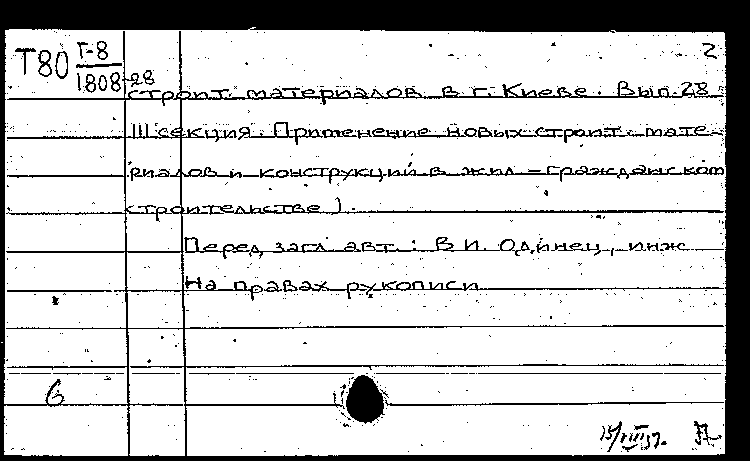 Т80 Г-8
1808-28
2
строит. материалов в г. Киеве. Вып. 28
III секция. Применение новых строит. мате-
риалов и конструкций в жил-гражданском
строительстве).
Перед загл. авт.: В.И. Одинец, инж
На правах рукописи
6
15/VIII 57.